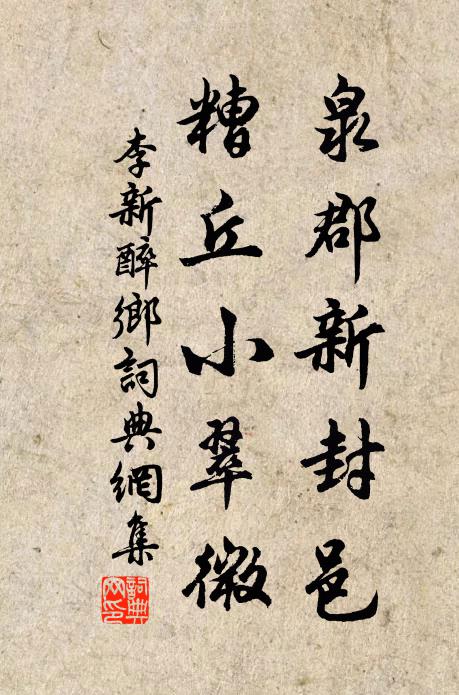 泉郡新封邑
糟丘小翠微
李新醉鄉詞典網集
詞典網印